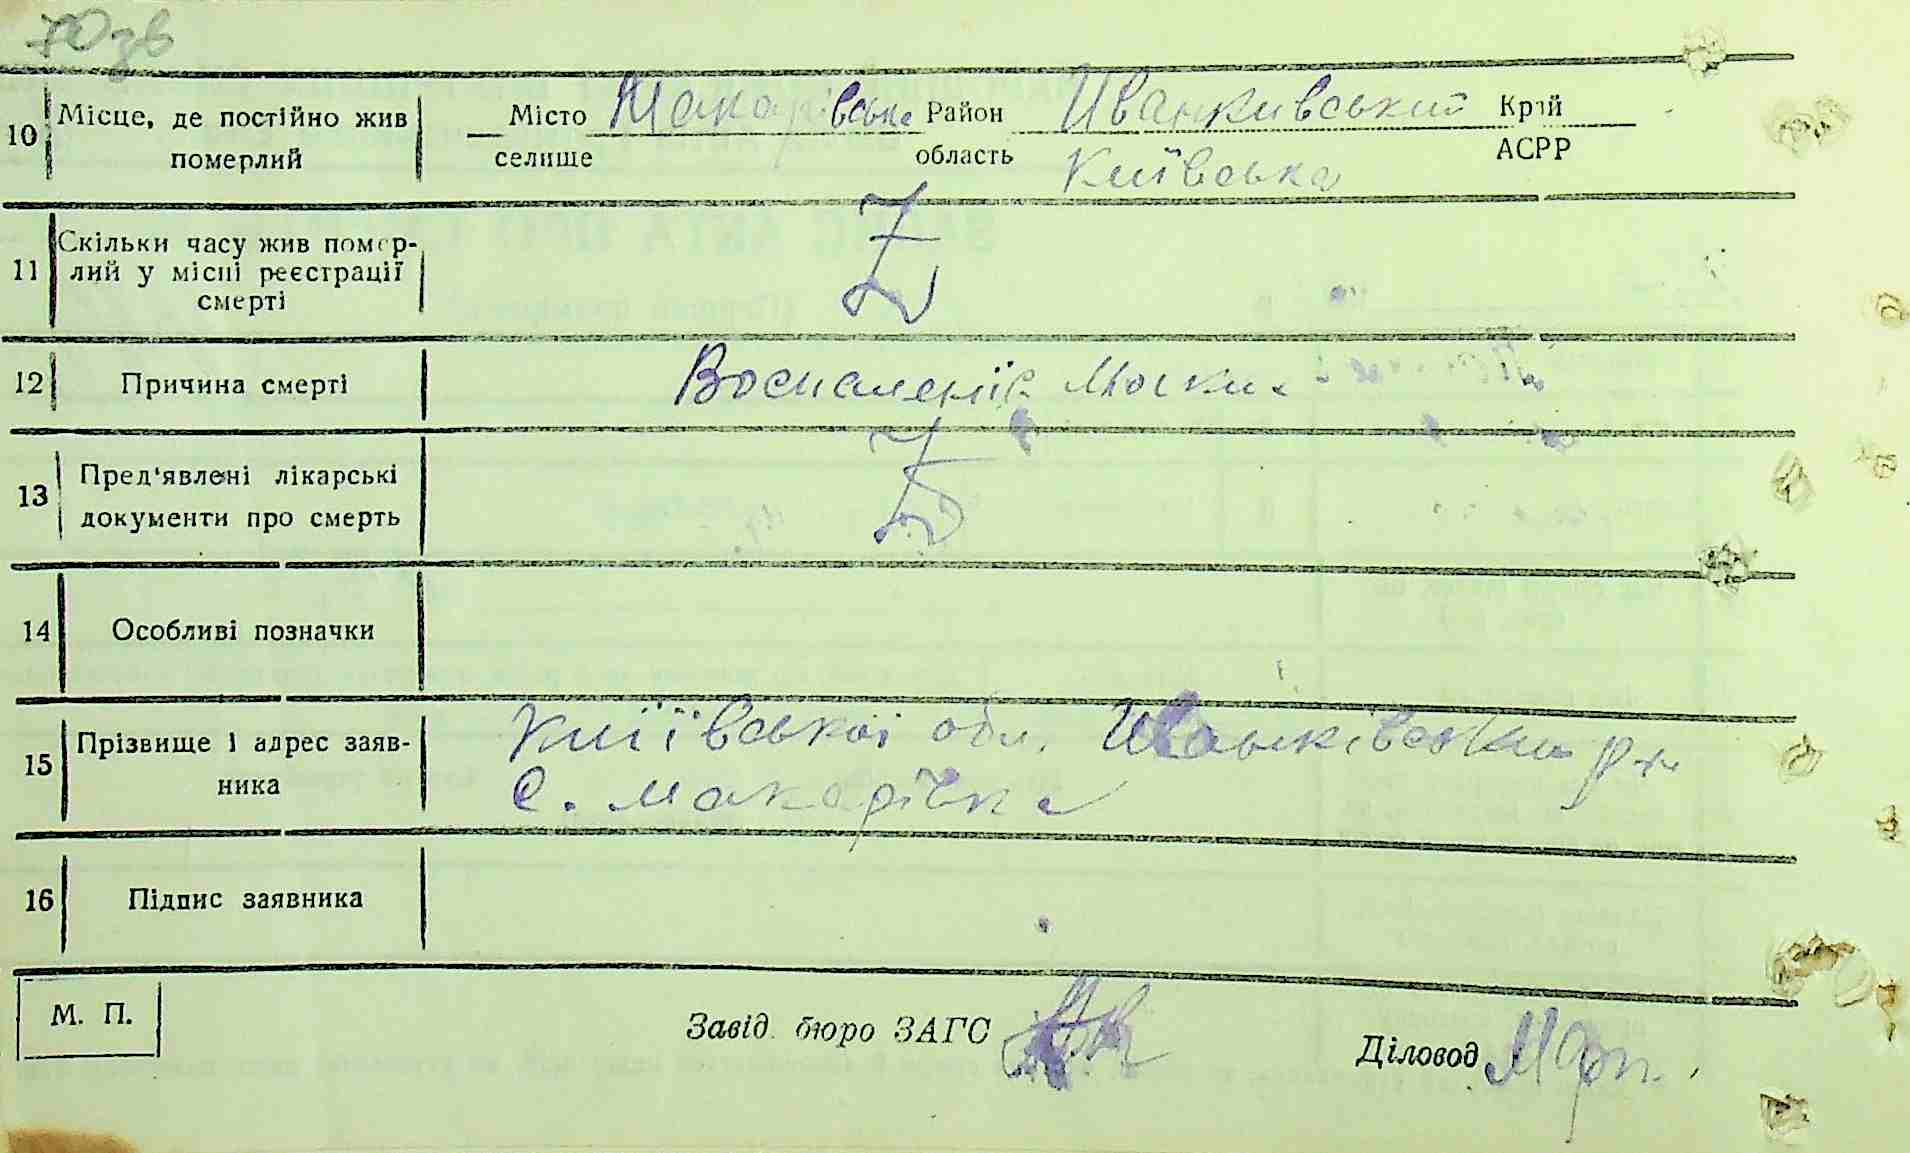 70зв
10 Місце, де постійно жив померлий
Місто Макарівська Район Иванкивський Край
селище область Київська АСРР
11 Скільки часу жив помер-
лий у місці реєстрації
смерті
Z
12 Причина смерті Воспаленіє
13 Пред'явлені лікарські
документи про смерть
Z
14 Особливі позначки
15 Прізвище і адрес заяв-
ника
Київської обл. р-н
с. Макарівка
16 Підпис заявника
М. П.
Завід. бюро ЗАГС
Діловод